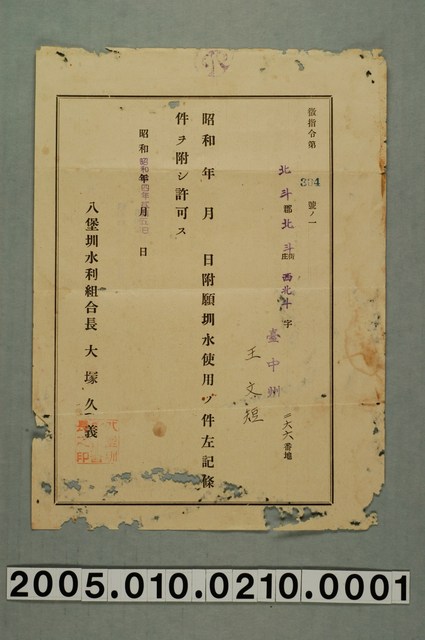 徵指令第
394
號ノ一
北斗郡北斗街庄西北斗字
臺中州
一六六番地
王文短
昭和年月日附願圳水使用ノ件左記條
件ヲ附シ許可ス
昭和年月日
八堡圳水利組合長大塚久義
2005.010.0210.0001